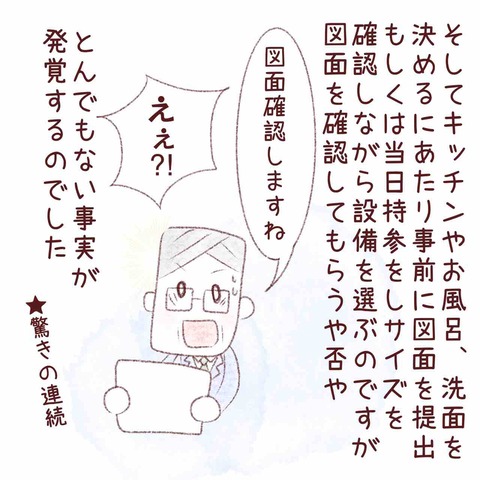 そしてキッチンやお風呂、洗面を
決めるにあたり事前に図面を提出
もしくは当日持参をしサイズを
確認しながら設備を選ぶのですが
図面を確認してもらうや否や
図面確認しますね
えぇ?!
とんでもない事実が
発覚するのでした
★驚きの連続